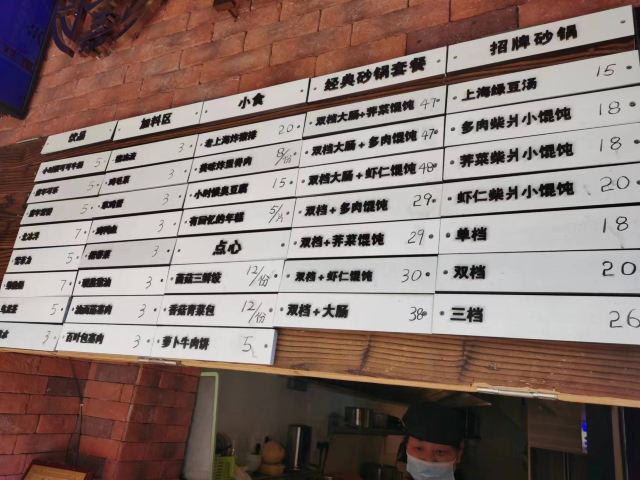 饮品
5
5
5
北冰洋 7
5
7
5
3
加料区
3
3
3
3
3
3
油面筋塞肉 3
百叶包塞肉 3
小食
老上海炸猪排 20
8/份
小时候臭豆腐 15
有回忆的年糕 5/片
点心
菌菇三鲜饺 12/份
香菇青菜包 12/份
萝卜牛肉饼 5
经典砂锅套餐
双档大肠+荠菜馄饨 47
双档大肠+多肉馄饨 47
双档大肠+虾仁馄饨 48
双档+多肉馄饨 29
双档+荠菜馄饨 29
双档+虾仁馄饨 30
双档+大肠 38
招牌砂锅
上海绿豆汤 15
多肉柴爿小馄饨 18
荠菜柴爿小馄饨 18
虾仁柴爿小馄饨 20
单档 18
双档 20
三档 26